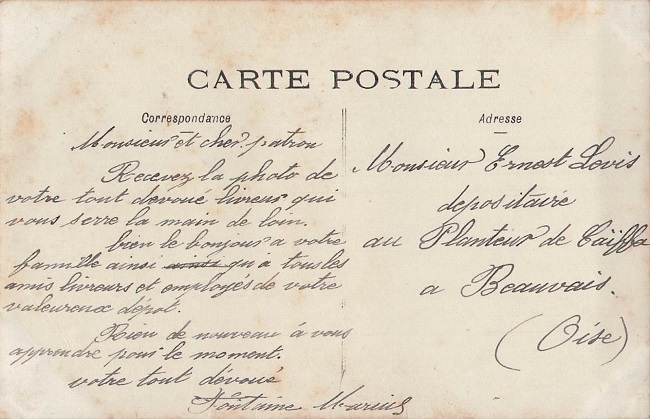 CARTE POSTALE
Correspondance
Monsieur et cher patron
Recevez la photo de
votre tout dévoué livreur qui
vous serre la main de loin.
bien le bonjour a votre
famille ainsi ainsi qu'à tous les
amis livreurs et employés de votre
valeureux dépot.
Rien de nouveau à vous
apprendre pour le moment.
votre tout dévoué
Fontaine Marius
Adresse
Monsieur Ernest Levis
depositaire
au Planteur de Caïffa
a Beauvais.
(Oise)